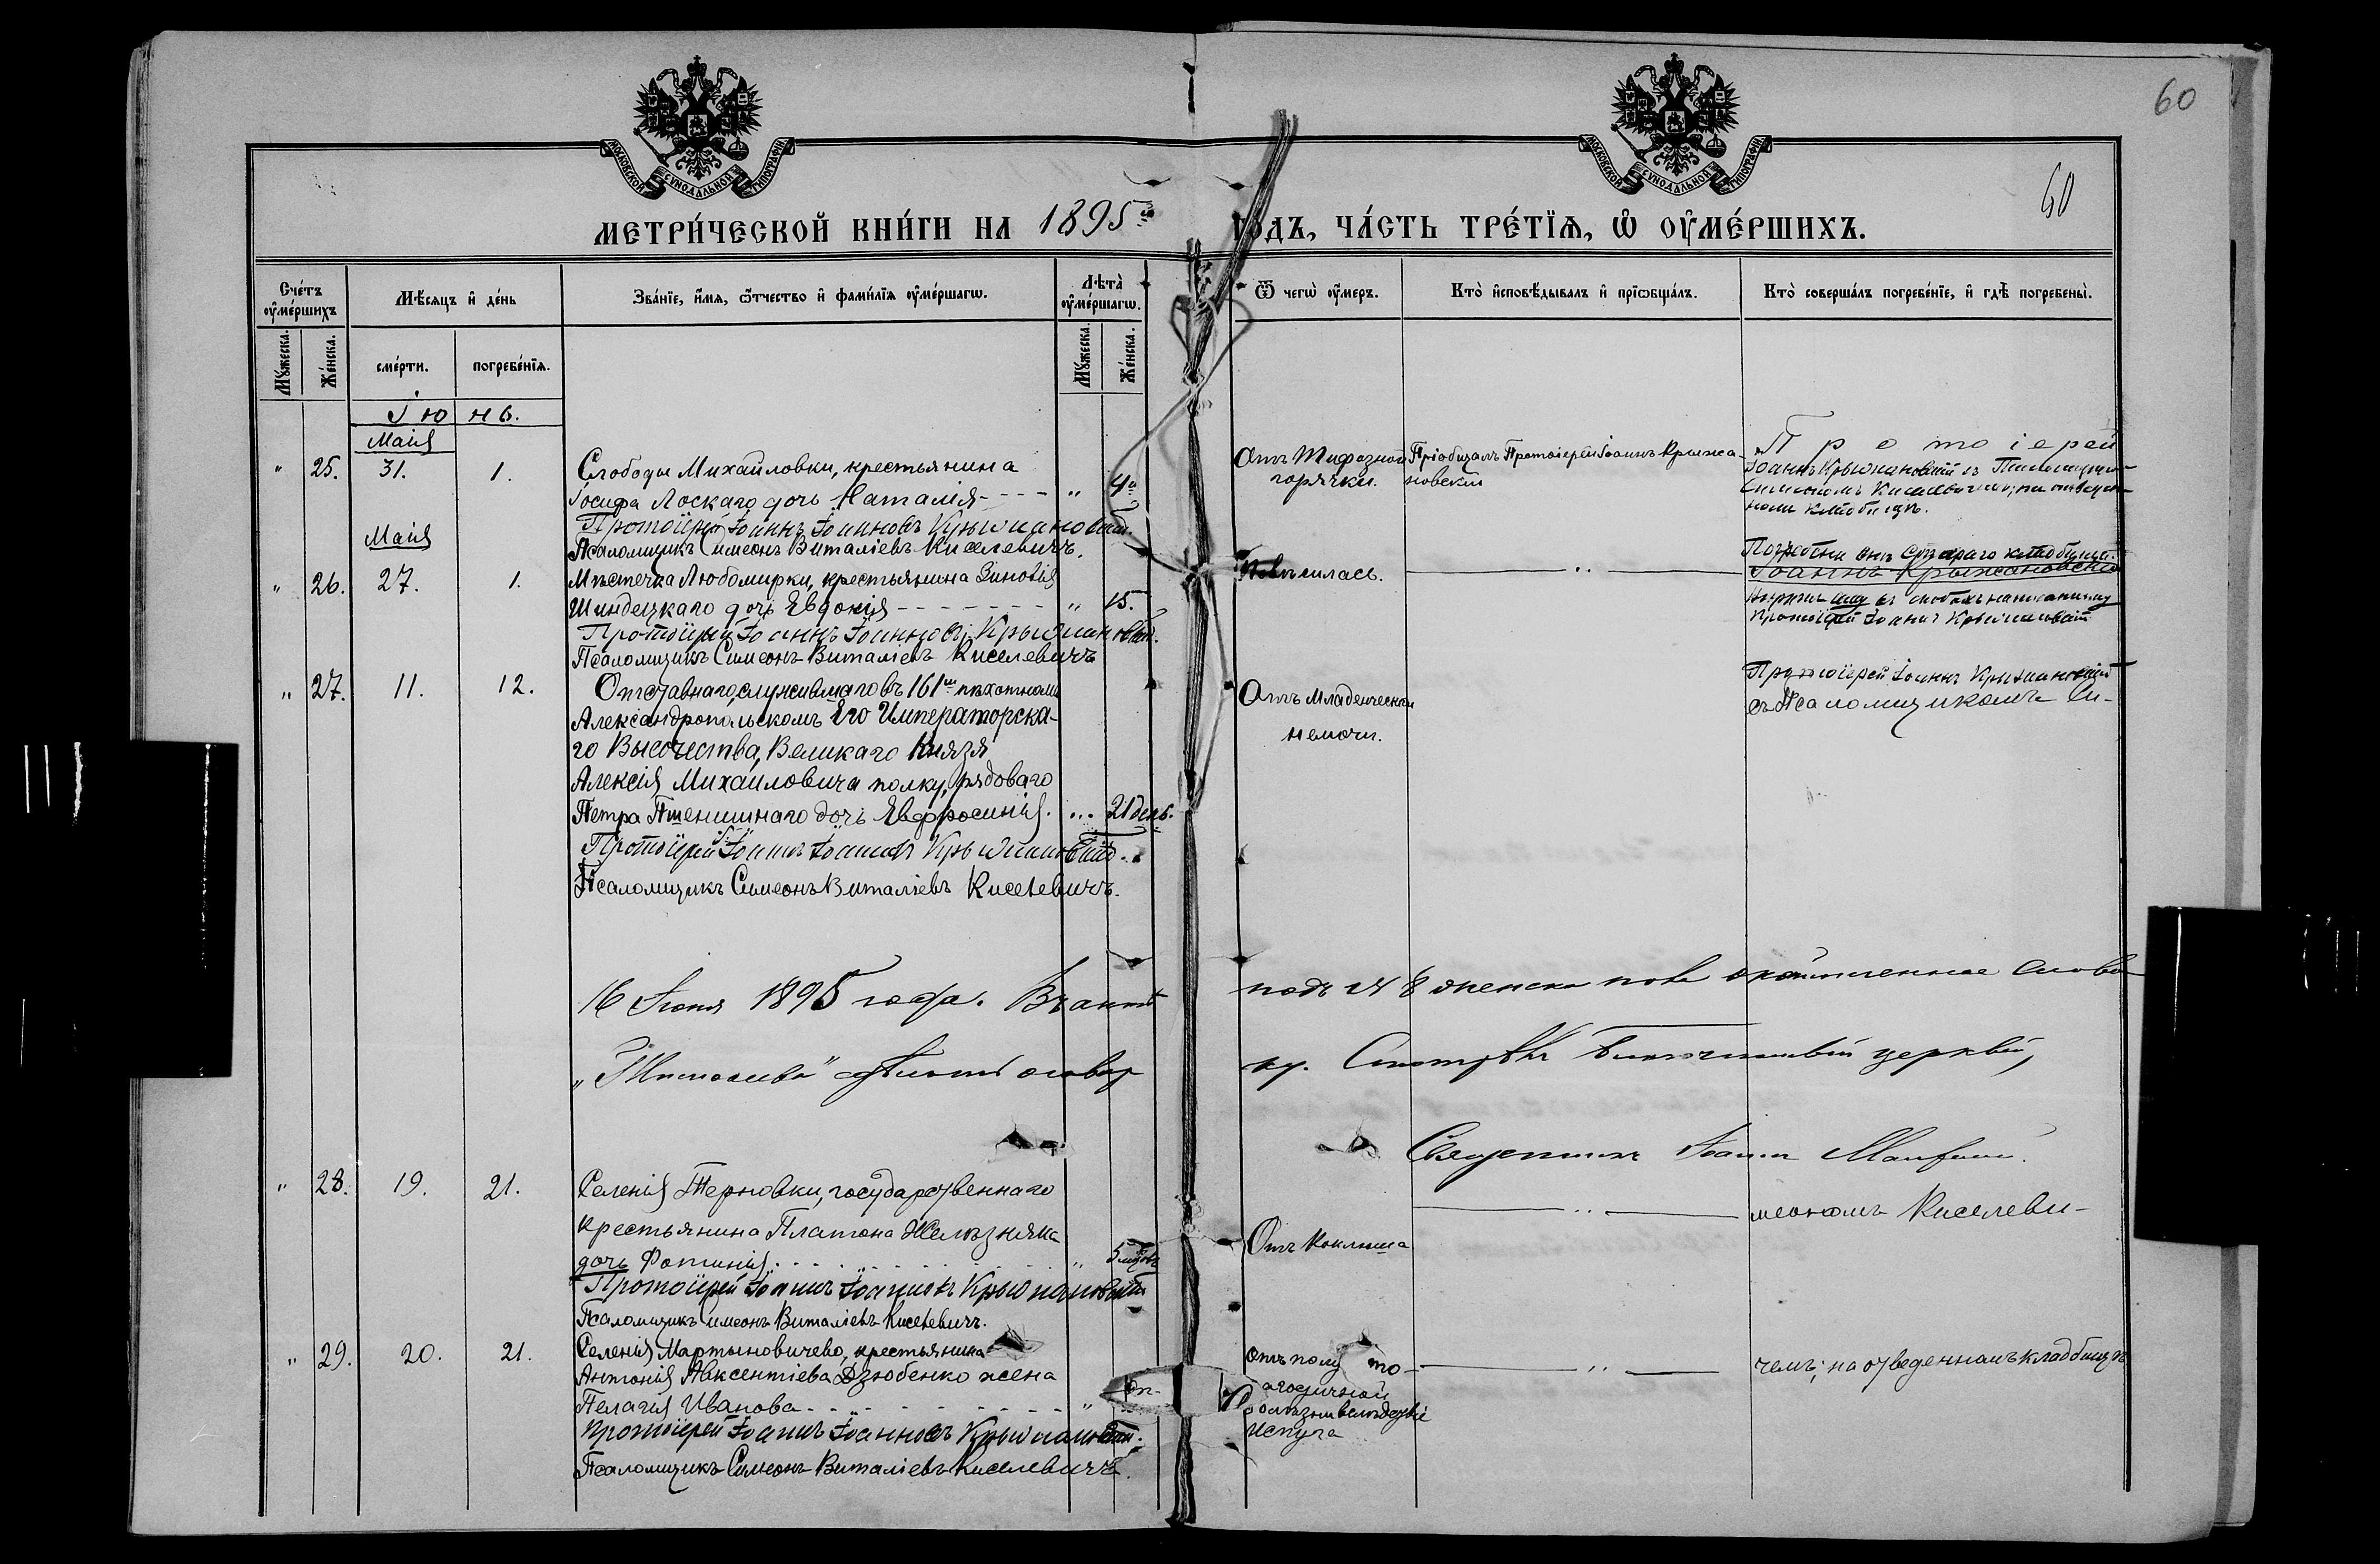 60
МОСКОВСКОЙ СѴНОДАЛЬНОЙ ТИПОГРАФІИ
МОСКОВСКОЙ СѴНОДАЛЬНОЙ ТИПОГРАФІИ
60
МЕТРИ́ЧЕСКОЙ КНИ́ГИ НА 1895й ГОДЪ, ЧА́СТЬ ТРЕ́ТЇѦ, Ѡ҆ ОУ҆МЕ́РШИХЪ.
Сче́тъ оу҆ме́ршихъ
Мѣ́сѧцъ и҆ де́нь
Зва́нїе, и҆́мѧ, ѻ҆́тчество и҆ фами́лїѧ оу҆ме́ршагѡ.
Лѣта̀ оу҆ме́ршагѡ.
Ѿ чегѡ̀ оу҆́меръ.
Кто̀ и҆сповѣ́дывалъ и҆ прїѡбща́лъ.
Кто̀ соверша́лъ погребе́нїе, и҆ гдѣ̀ погребены̀.
Мꙋ́жеска.
Же́нска.
сме́рти.
погребе́нїѧ.
Мꙋ́жеска.
Же́нска.
Іюнь.
Маія
" 25. 31. 1.
Слободы Михайловки, крестьянина
Іосифа Лоскаго дочь Наталія - - - " 4
Протоіерей Іоаннъ Іоанновъ Крыжановскій.
Псаломщикъ Симеонъ Виталіевъ Киселевичъ.
Отъ Тифозной
горячки.
Пріобщалъ Протоіерей Іоаннъ Крыжа-
новскій
Протоіерей
Іоаннъ Крыжановскій съ Псаломщикомъ
Симеономъ Киселевичемъ; на отведен-
номъ кладбищѣ.
Маія
" 26. 27. 1.
Мѣстечка Любомирки, крестьянина Зиновія
Шиндецкаго дочь Евдокія - - - - - - - " 15.
Протоіерей Іоаннъ Іоанновъ Крыжановскій.
Псаломщикъ Симеонъ Виталіевъ Киселевичъ
Повѣсилась.
"
Іоаннъ Крыжановскій
Протоіерей Іоаннъ Крыжановскій
" 27. 11. 12.
Отставнаго, служившаго въ 161м пѣхотномъ
Александропольскомъ Его Императорска-
го Высочества, Великаго Князя
Алексія Михайловича полку, рядоваго
Петра Пшенишнаго дочь Евфросинія. ... 21 день.
Протоіерей Іоаннъ Іоанновъ Крыжановскій.
Псаломщикъ Симеонъ Виталіевъ Киселевичъ.
Отъ младенческой
немочи.
Протоіерей Іоаннъ Крыжановскій
съ Псаломщикомъ Си-
16 Іюня 1895 года. Въ актѣ подъ № 8 женска пола слова
церквей,
Священникъ Іоаннъ
" 28. 19. 21.
Селенія Терновки, государственнаго
крестьянина Платона Желѣзняка
дочь Фотинія. . . . . . . . . " 5
Протоіерей Іоаннъ Іоанновъ Крыжановскій
Псаломщикъ Симеонъ Виталіевъ Киселевичъ.
Отъ Коклюша
"
меономъ Киселеви-
" 29. 20. 21.
Селенія Мартыновичево, крестьянина
Антонія Авксентіева Дзюбенко жена
Пелагія Иванова . . . . . . . "
Протоіерей Іоаннъ Іоанновъ Крыжановскій.
Псаломщикъ Симеонъ Виталіевъ Киселевичъ.
отъ полу
болѣзни вслѣдствіе
испуга
"
чемъ; на отведенномъ кладбищѣ